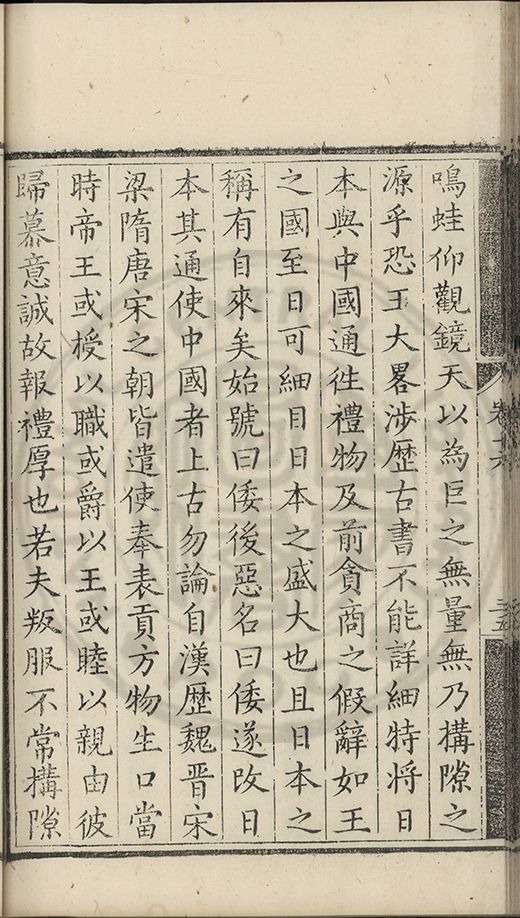 鳴蛙仰觀鏡天以為巨之無量無乃構隙之
源乎恐王大畧涉歷古書不能詳細特將日
本與中國通往禮物及前貪商之假辭如王
之國至日可細目日本之盛大也且日本之
稱有自來矣始號曰倭後惡名曰倭遂改日
本其通使中國者上古勿論自漢歷魏晉宋
梁隋唐宋之朝皆遣使奉表貢方物生口當
時帝王或授以職或爵以王或睦以親由彼
歸慕意誠故報禮厚也若夫叛服不常構隙
卷十六